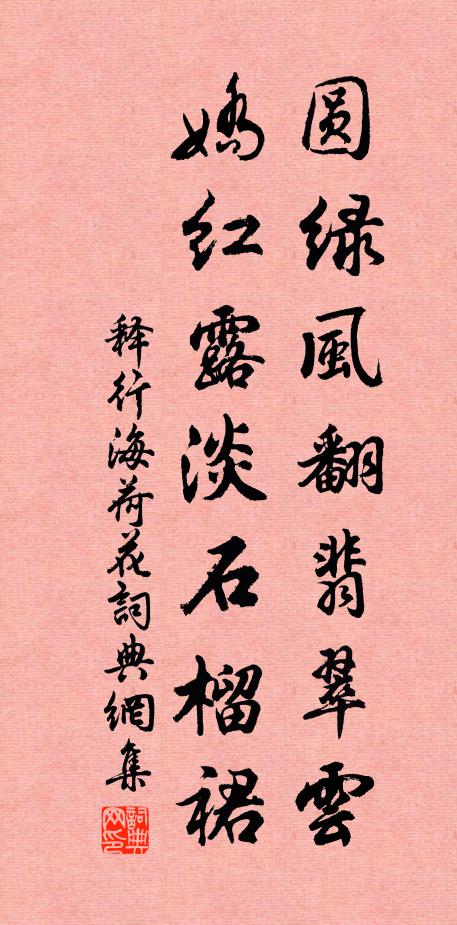 圆绿風翻翡翠雲
娇紅露淡石榴裙
释行海荷花詞典網集
詞典网印